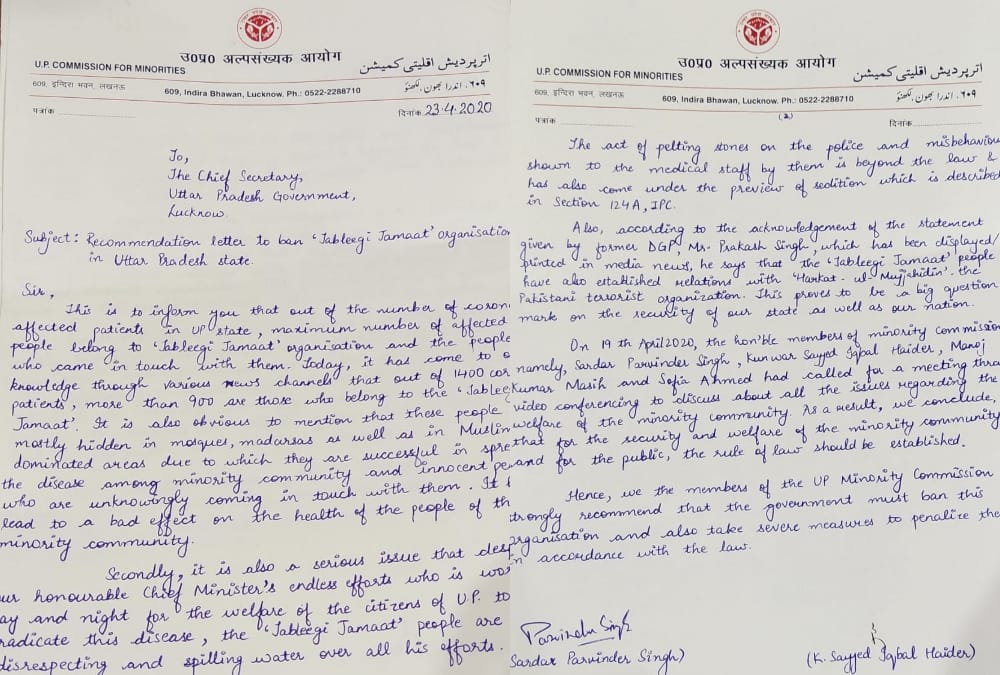 उ०प्र० अल्पसंख्यक आयोग
U.P. COMMISSION FOR MINORITIES
اترپردیش اقلیتی کمیشن
609, इन्दिरा भवन, लखनऊ
609, Indira Bhawan, Lucknow. Ph.: 0522-2288710
۶۰۹، اندرا بھون، لکھنؤ
पत्रांक
दिनांक 23.4.2020
To,
The Chief Secretary,
Uttar Pradesh Government,
Lucknow.
Subject: Recommendation letter to ban 'Tableegi Jamaat' organisation
in Uttar Pradesh state.
Sir,
This is to inform you that out of the number of coron
affected patients in UP state, maximum number of affected
people belong to 'Tableegi Jamaat' organisation and the people
who came in touch with them. Today, it has come to o
knowledge through various news channels that out of 1400 cor
patients, more than 900 are those who belong to the 'Tablee
Jamaat'. It is also obvious to mention that these people
mostly hidden in mosques, madarsas as well as in Muslim
dominated areas due to which they are successful in spre
the disease among minority community and innocent pe
who are unknowingly coming in touch with them. It
lead to a bad effect on the health of the people of th
minority community.
Secondly, it is also a serious issue that desp
ur honourable Chief Minister's endless efforts who is wor
ay and night for the welfare of the citizens of U.P. to
radicate this disease, the 'Tableegi Jamaat' people are
disrespecting and spilling water over all his efforts.
उ०प्र० अल्पसंख्यक आयोग
U.P. COMMISSION FOR MINORITIES
اترپردیش اقلیتی کمیشن
609, इन्दिरा भवन, लखनऊ
609, Indira Bhawan, Lucknow. Ph.: 0522-2288710
۶۰۹، اندرا بھون، لکھنؤ
(2)
पत्रांक
दिनांक
The act of pelting stones on the police and misbehaviou
shown to the medical staff by them is beyond the law &
has also come under the preview of sedition which is described
in Section 124A, IPC.
Also, according to the acknowledgement of the statement
given by former DGP, Mr. Prakash Singh, which has been displayed/
printed in media news, he says that the 'Tableegi Jamaat' people
have also established relations with 'Harkat-ul-Mujjahidin' the
Pakistani terrorist organization. This proves to be a big question
mark on the security of our state as well as our nation.
On 19th April 2020, the hon'ble members of minority commission
namely, Sardar Parvinder Singh, Kunwar Sayyed Iqbal Haider, Manoj
Kumar Masih and Sofia Ahmed had called for a meeting thro
video conferencing to discuss about all the issues regarding the
welfare of the minority community. As a result, we conclude,
that for the security and welfare of the minority community
and for the public, the rule of law should be established.
Hence, we the members of the UP Minority Commission
strongly recommend that the government must ban this
organisation and also take severe measures to penalize the
in accordance with the law.
Parvinder Singh
Sardar Parvinder Singh)
(K. Sayyed Iqbal Haider)